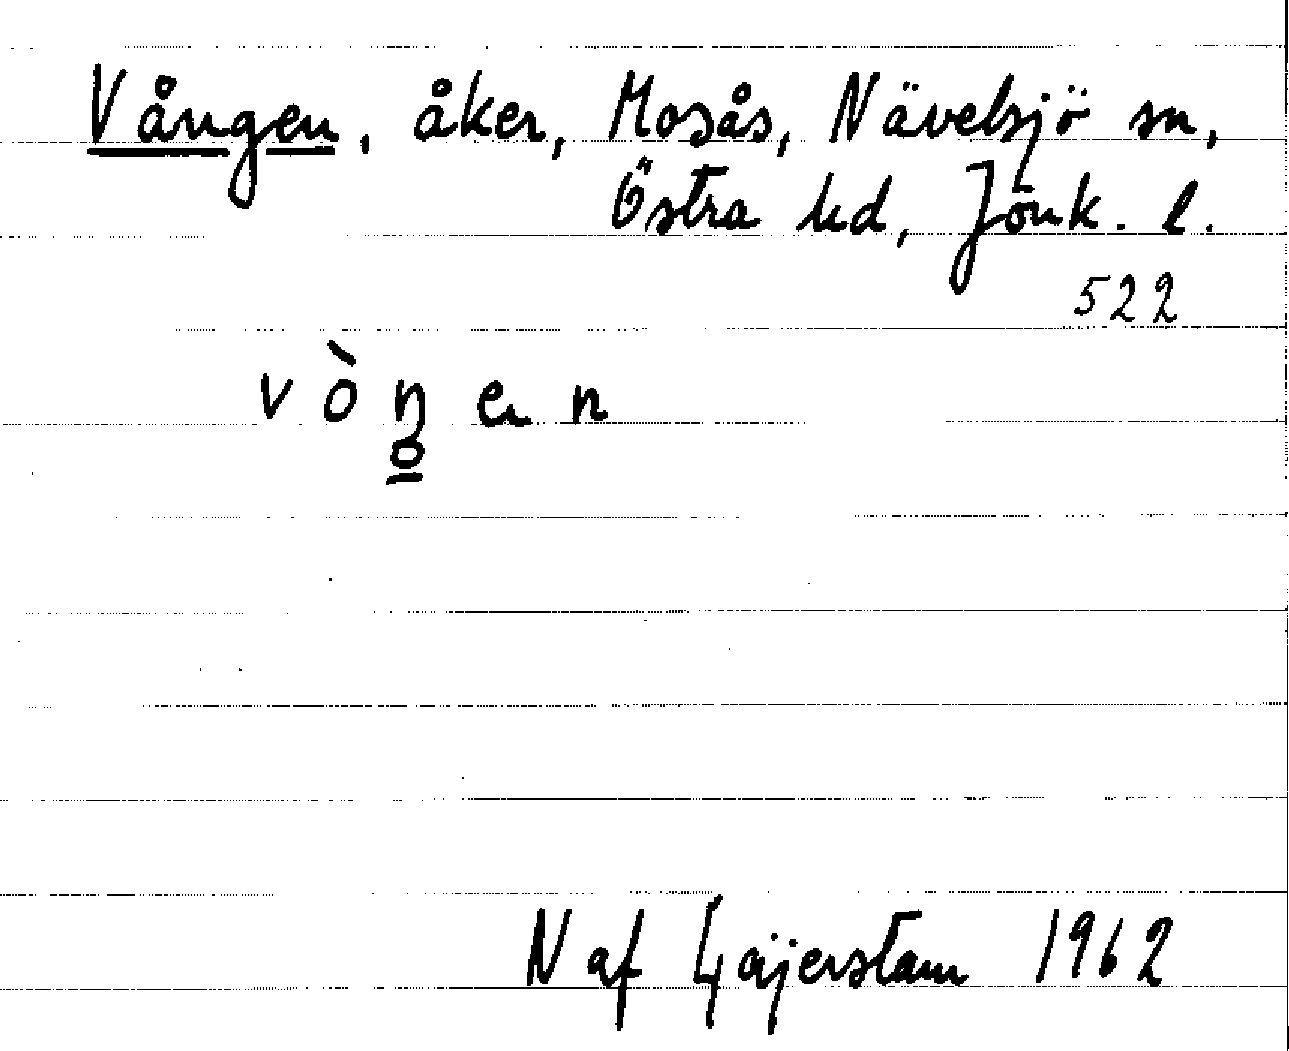 Vången, åker, Mosås, Nävelsjö sn,
Östra hd, Jönk. l.
522
v ò ŋ e n
N af Gäijerstam 1962